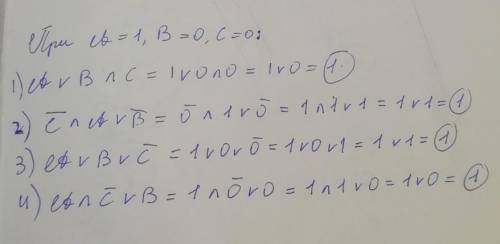 При A = 1, B = 0, C = 0:
1) A ∨ B ∧ C = 1 ∨ 0 ∧ 0 = 1 ∨ 0 = 1.
2) C̅ ∧ A ∨ B̅ = 0̅ ∧ 1 ∨ 0̅ = 1 ∧ 1 ∨ 1 = 1 ∨ 1 = 1
3) A ∨ B ∨ C̅ = 1 ∨ 0 ∨ 0̅ = 1 ∨ 0 ∨ 1 = 1 ∨ 1 = 1
4) A ∧ C̅ ∨ B = 1 ∧ 0̅ ∨ 0 = 1 ∧ 1 ∨ 0 = 1 ∨ 0 = 1